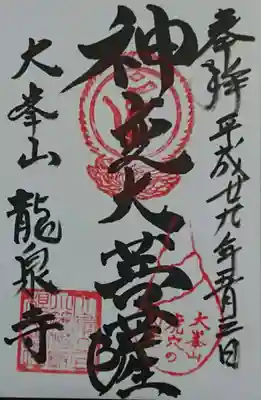 奉拝 平成廿九年五月三日
神変大菩薩
大峯山 龍泉寺
大峯山